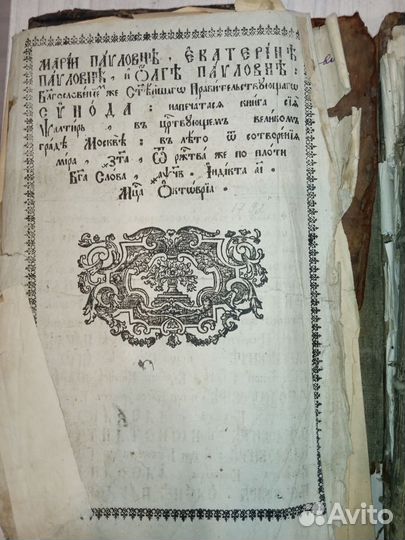 МАРІИ ПАѴЛОВНѢ, ЄКАТЕРІНѢ
ПАѴЛОВНѢ, И ѺЛГѢ ПАѴЛОВНѢ:
Благословенїемъ же Ст҃ѣйшагѡ Правителствующагѡ
СѴНОДА: напечатася книга сїѧ
Ѱалтирь, въ црⷭ҇твующемъ великомъ
градѣ Москвѣ: въ лѣто ѿ сотворенїѧ
міра, ѿ ржⷭ҇тва же по плоти
Бг҃а Слова, Індікта аі.
Мцⷭ҇а Октѡврїа.
Avito